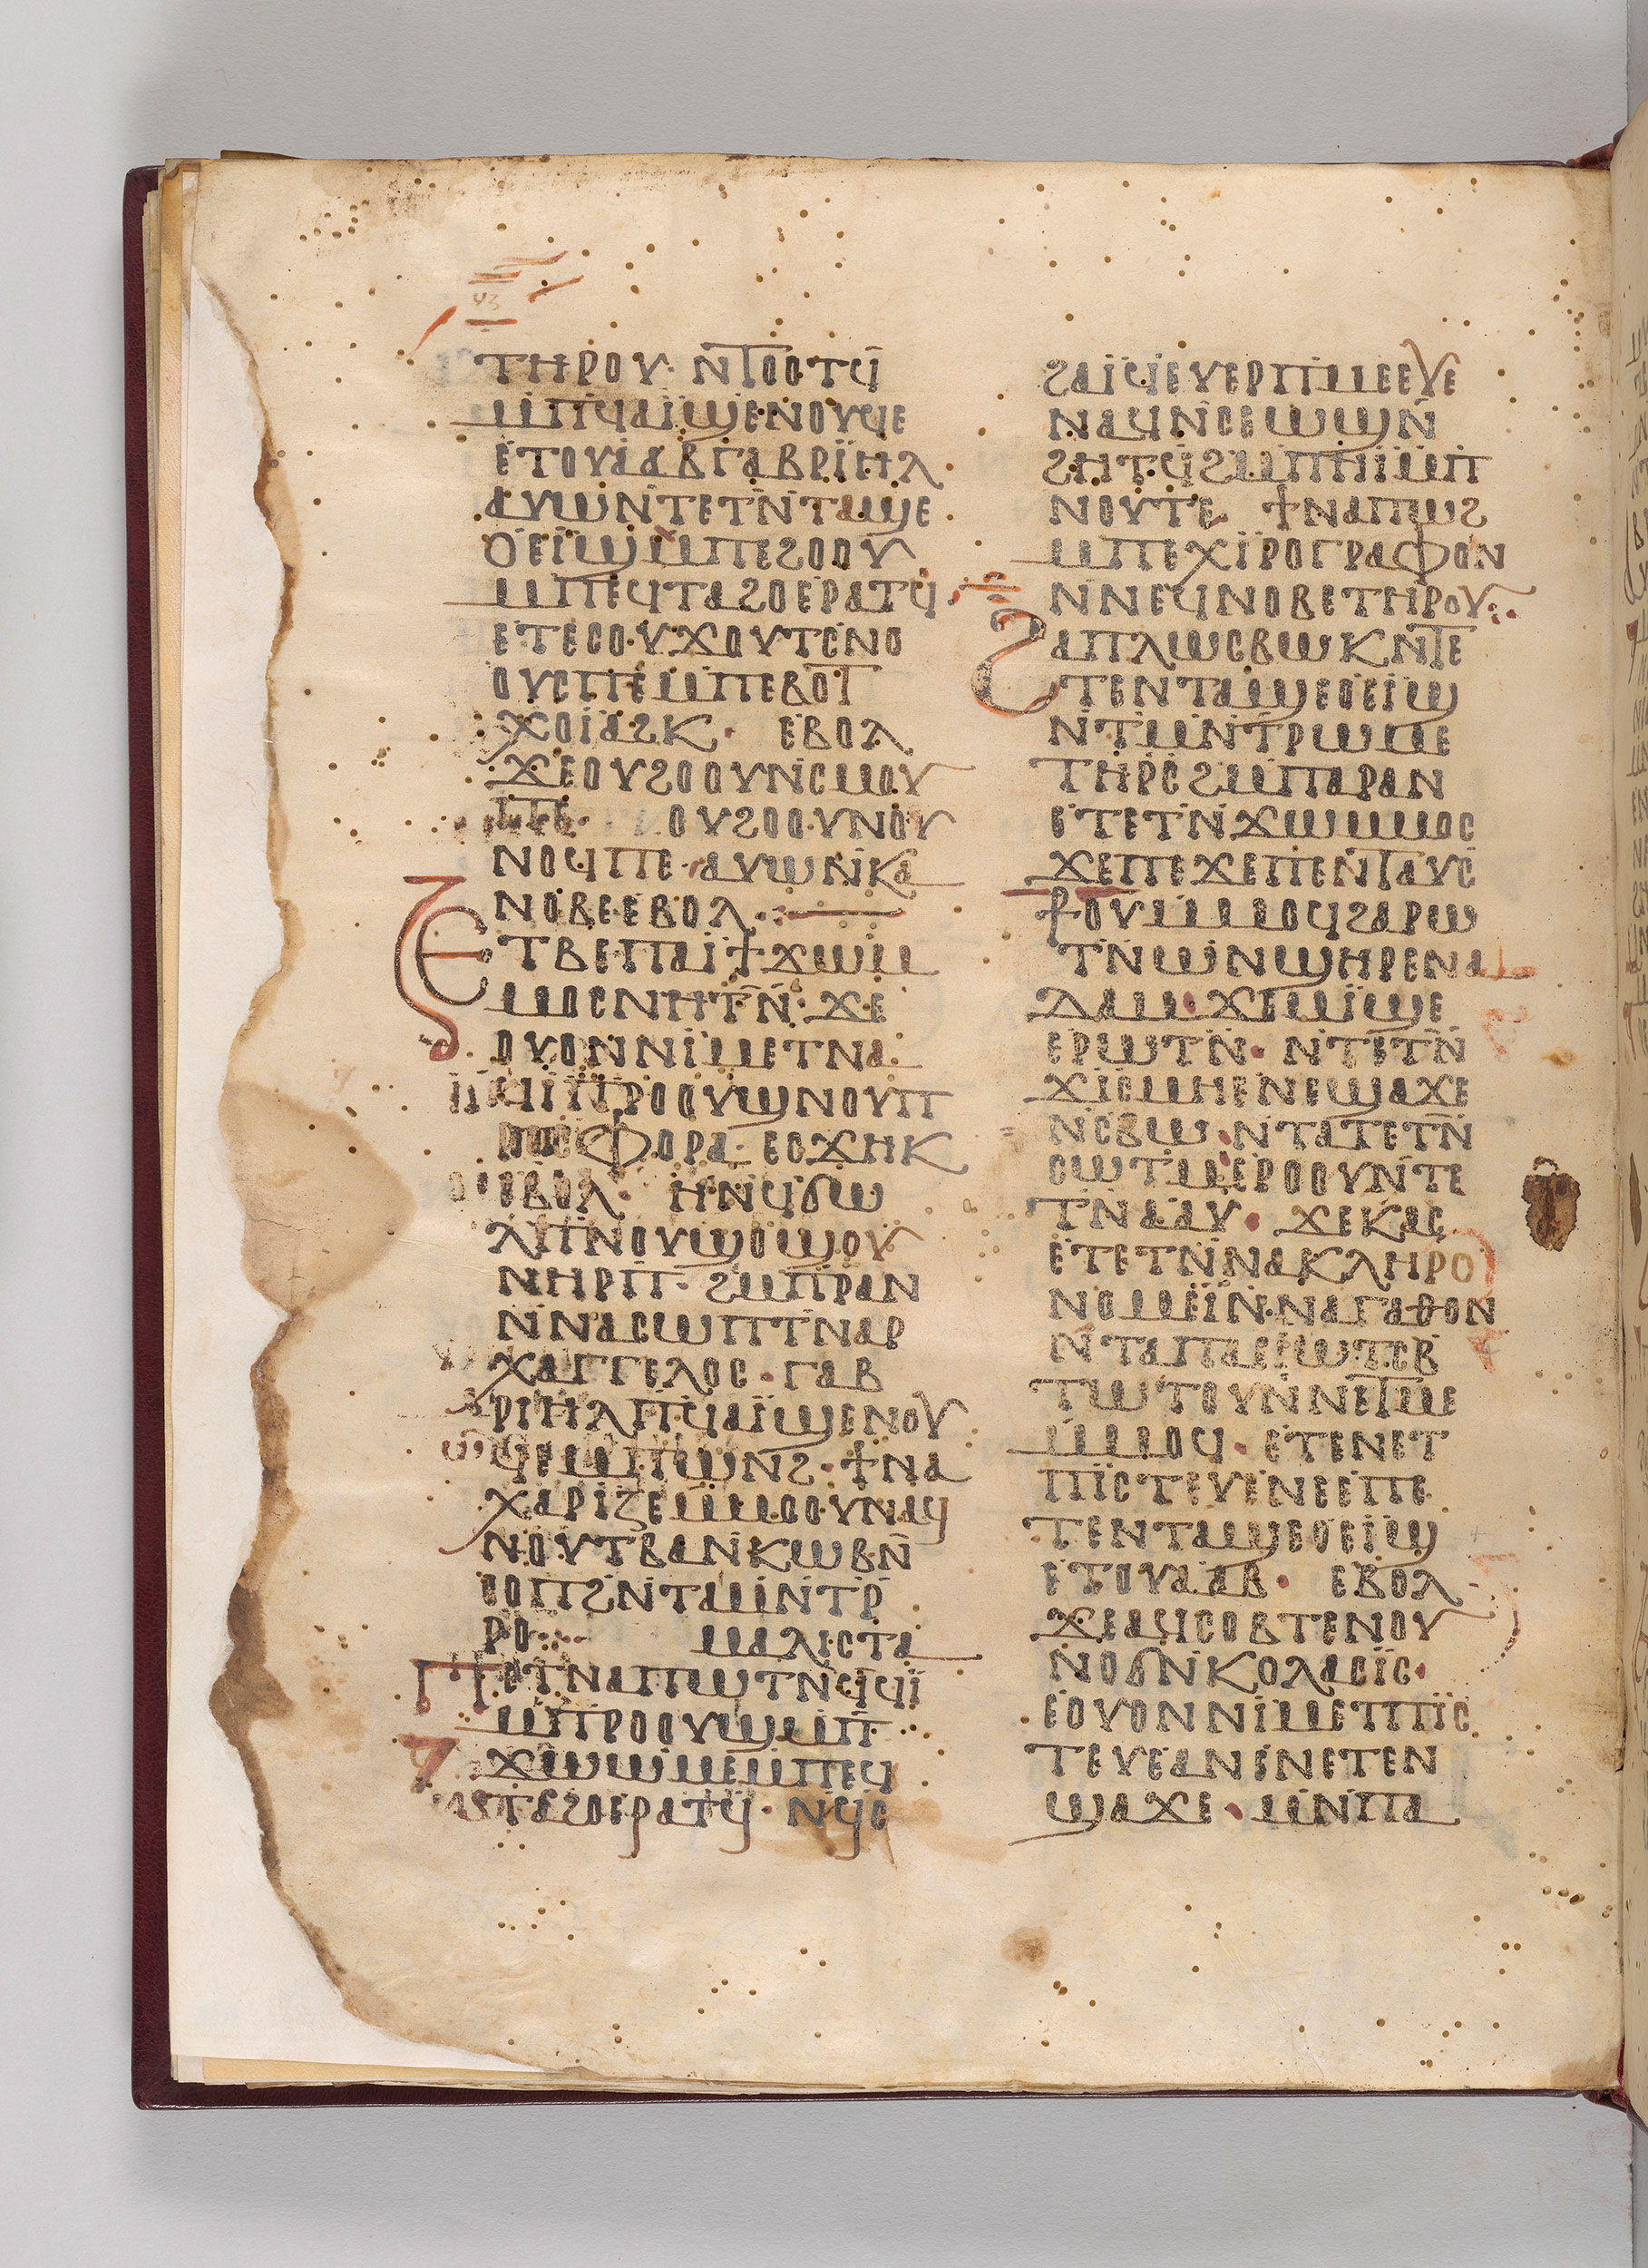 ⲧⲏⲣⲟⲩ· ⲛ̅ⲧⲟⲟⲧϥ̅
ⲙ̅ⲡϥⲁⲓ̈ϣⲉⲛⲟⲩϥⲉ
ⲉⲧⲟⲩⲁⲁⲃⲅⲁⲃⲣⲓ̈ⲏⲗ·
ⲁⲩⲱⲛ̅ⲧⲉⲧⲛ̅ⲧⲁϣⲉ
ⲟⲉⲓ̈ϣⲙ̅ⲡⲉϩⲟⲟⲩ
ⲙ̅ⲡⲉϥⲧⲁϩⲟⲉⲣⲁⲧϥ̅·
ⲉⲧⲉⲥⲟⲩϫⲟⲩⲧⲥⲛⲟ
ⲟⲩⲥⲡⲉⲙ̅ⲡⲉⲃⲟⲧ
ⲭⲟⲓⲁϩⲕ· ⲉⲃⲟⲗ
ϫⲉⲟⲩϩⲟⲟⲩⲛ̅ⲥⲙⲟⲩ
ⲡⲉ· ⲟⲩϩⲟⲟⲩⲛⲟⲩ
ⲛⲟϥⲡⲉ· ⲁⲩⲱⲛ̅ⲕⲁ
ⲛⲟⲃⲉⲉⲃⲟⲗ·
ⲉⲧⲃⲉⲡⲁⲓ̈ϯϫⲱⲙ̅
ⲙⲟⲥⲛⲏⲧⲛ̅· ϫⲉ
ⲟⲩⲟⲛⲛⲓⲙⲉⲧⲛⲁ
ϥⲓⲡ̅ⲣⲟⲟⲩϣⲛⲟⲩⲡ
ⲣⲟⲥⲫⲟⲣⲁ· ⲉⲥϫⲏⲕ
ⲉⲃⲟⲗ· ⲏⲛϥ̅ϭⲱ
ⲗⲡ̅ⲛⲟⲩϣⲟϣⲟⲩ
ⲛⲏⲣⲡ̅· ϩⲙ̅ⲡⲣⲁⲛ
ⲛ̅ⲛⲁⲥⲱⲡⲧ̅ⲛⲁⲣ
ⲭⲁⲅⲅⲉⲗⲟⲥ· ⲅⲁⲃ
ⲣⲓⲏⲗⲡϥⲁⲓ̈ϣⲉⲛⲟⲩ
ϥⲉⲙ̅ⲡⲱⲛϩ· ϯⲛⲁ
ⲭⲁⲣⲓⲍⲉⲙ̅ⲙⲟⲟⲩⲛⲁϥ
ⲛ̅ⲟⲩⲧⲃⲁⲛ̅ⲕⲱⲃⲛ̅
ⲥⲟⲡϩⲛ̅ⲧⲁⲙⲛ̅ⲧⲣ̅
ⲣⲟ ⲙⲁⲗⲓⲥⲧⲁ
ⲡⲉⲧⲛⲁⲡⲱⲧⲛϥϥⲓ̈
ⲙ̅ⲡⲣⲟⲟⲩϣⲙ̅ⲡ
ϫⲱⲱⲙⲉⲙ̅ⲡⲉϥ
ⲧⲁϩⲟⲉⲣⲁⲧϥ̅· ⲛϥ̅ⲥ
ϩⲁⲓ̈ϥⲉⲩⲉⲣⲡⲙⲉⲉⲩⲉ
ⲛⲁϥⲛ̅ⲥⲉⲱϣⲛ̅
ϩⲏⲧϥ̅ϩⲙ̅ⲡⲏⲓ̈ⲙ̅ⲡ
ⲛⲟⲩⲧⲉ ϯⲛⲁⲡⲱϩ
ⲙ̅ⲡⲉⲭⲓⲣⲟⲅⲣⲁⲫⲟⲛ
ⲛⲛⲉϥⲛⲟⲃⲉⲧⲏⲣⲟⲩ:
ϩⲁⲡⲗⲱⲥⲃⲱⲕⲛ̅ⲧⲉ
ⲧⲉⲛⲧⲁϣⲉⲟⲉⲓϣ
ⲛ̅ⲧⲙⲛ̅ⲧⲣⲱⲙⲉ
ⲧⲏⲣⲥ̅ϩⲙ̅ⲡⲁⲣⲁⲛ
ⲉⲧⲉⲧⲛ̅ϫⲱⲙⲙⲟⲥ
ϫⲉⲡⲉϫⲉⲡⲉⲛⲧⲁⲩⲥ
ⲣⲟⲩⲙ̅ⲙⲟϥϩⲁⲣⲱ
ⲧⲛ̅ⲱⲛ̅ϣⲏⲣⲉⲛⲁ
ⲇⲁⲙ· ϫⲉⲙⲓ̈ϣⲉ
ⲉⲣⲱⲧⲛ̅· ⲛⲧⲉⲧⲛ̅
ϫⲓⲥⲙⲏⲉⲛⲉϣⲁϫⲉ
ⲛ̅ⲥⲃⲱ·ⲛⲧⲁⲧⲉⲧⲛ̅
ⲥⲱⲧⲙ̅ⲉⲣⲟⲟⲩⲛ̅ⲧⲉ
ⲧⲛ̅ⲁⲁⲩ· ϫⲉⲕⲁⲥ
ⲉⲧⲉⲧⲛ̅ⲛⲁⲕⲗⲏⲣⲟ
ⲛⲟⲙⲉⲓ̈ⲛ̅ⲛⲁⲅⲁⲑⲟⲛ
ⲛ̅ⲧⲁⲡⲁⲉⲓⲱⲧⲥⲃ̅
ⲧⲱⲧⲟⲩⲛ̅ⲛⲉⲧⲙⲉ
ⲙ̅ⲙⲟϥ· ⲉⲧⲉⲛⲉⲧ
ⲡⲓ̈ⲥⲧⲉⲩⲉⲛⲉⲉⲡⲉ
ⲧⲉⲛⲧⲁϣⲉⲟⲉⲓϣ
ⲉⲧⲟⲩⲁⲁⲃ· ⲉⲃⲟⲗ
ϫⲉⲁϥⲥⲟⲃⲧⲉⲛⲟⲩ
ⲛⲟϭⲛ̅ⲕⲟⲗⲁⲥⲓ̈ⲥ·
ⲉⲟⲩⲟⲛⲛⲓⲙⲉⲧⲡⲓ̈ⲥ
ⲧⲉⲩⲉⲁⲛⲉⲛⲉⲧⲉⲛ
ϣⲁϫⲉ· ⲙⲛ̅ⲡⲁ